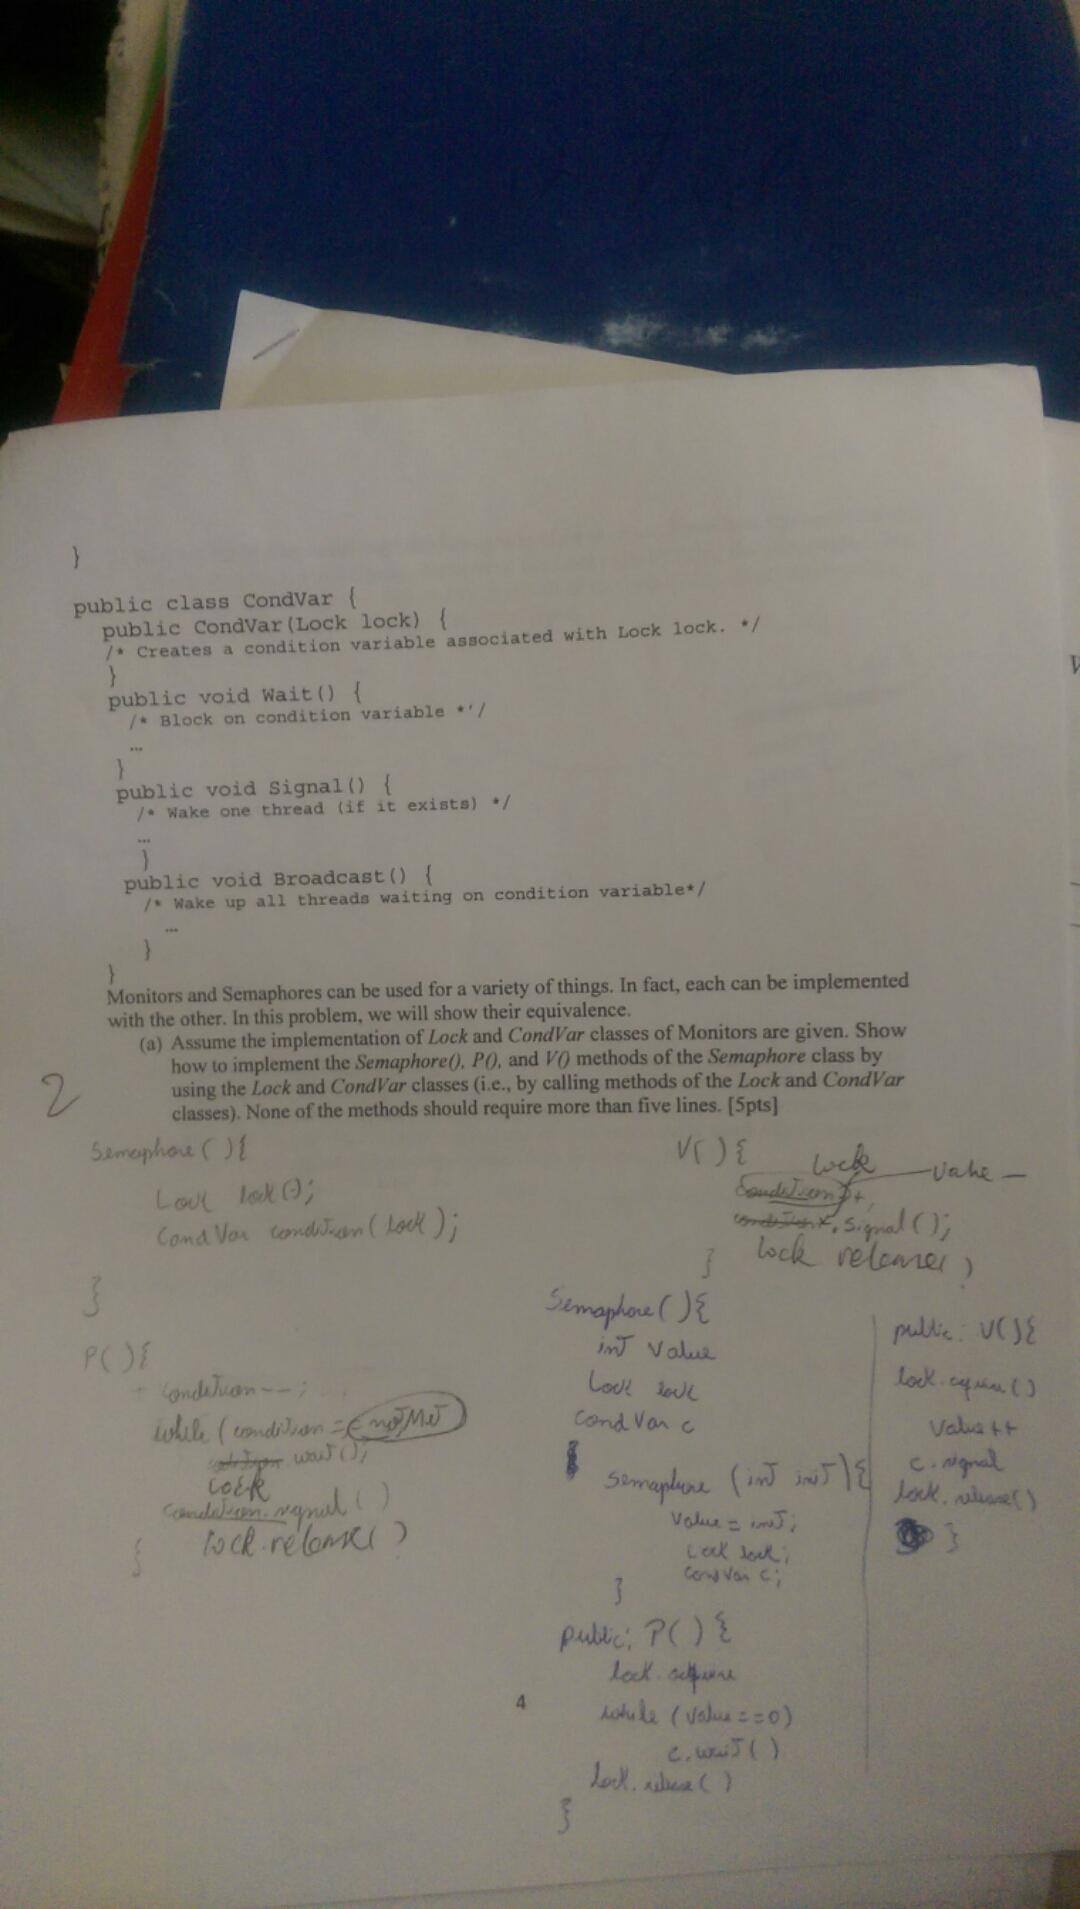 }
public class CondVar {
public CondVar(Lock lock) {
/* Creates a condition variable associated with Lock lock. */
}
public void Wait() {
/* Block on condition variable *'/
…
}
public void Signal() {
/* Wake one thread (if it exists) */
…
}
public void Broadcast() {
/* Wake up all threads waiting on condition variable*/
…
}
}
Monitors and Semaphores can be used for a variety of things. In fact, each can be implemented
with the other. In this problem, we will show their equivalence.
(a) Assume the implementation of Lock and CondVar classes of Monitors are given. Show
how to implement the Semaphore(), P(), and V() methods of the Semaphore class by
using the Lock and CondVar classes (i.e., by calling methods of the Lock and CondVar
classes). None of the methods should require more than five lines. [5pts]
2
Semaphore ( ) {
Lock lock();
CondVar condition(lock);
}
P( ) {
condition--;
while (condition == notMet
wait();
Lock
condition.signal()
lock.release()
}
V( ) {
lock
value
condition++,
.signal();
lock release()
}
Semaphore ( ) {
int value
Lock lock
CondVar c
Semaphore (int init) {
value = init;
Lock lock;
CondVar c;
}
public: P( ) {
lock.acquire
while (value == 0)
c.wait()
lock.release()
}
public: V() {
lock.acquire()
value++
c.signal
lock.release()
}
4